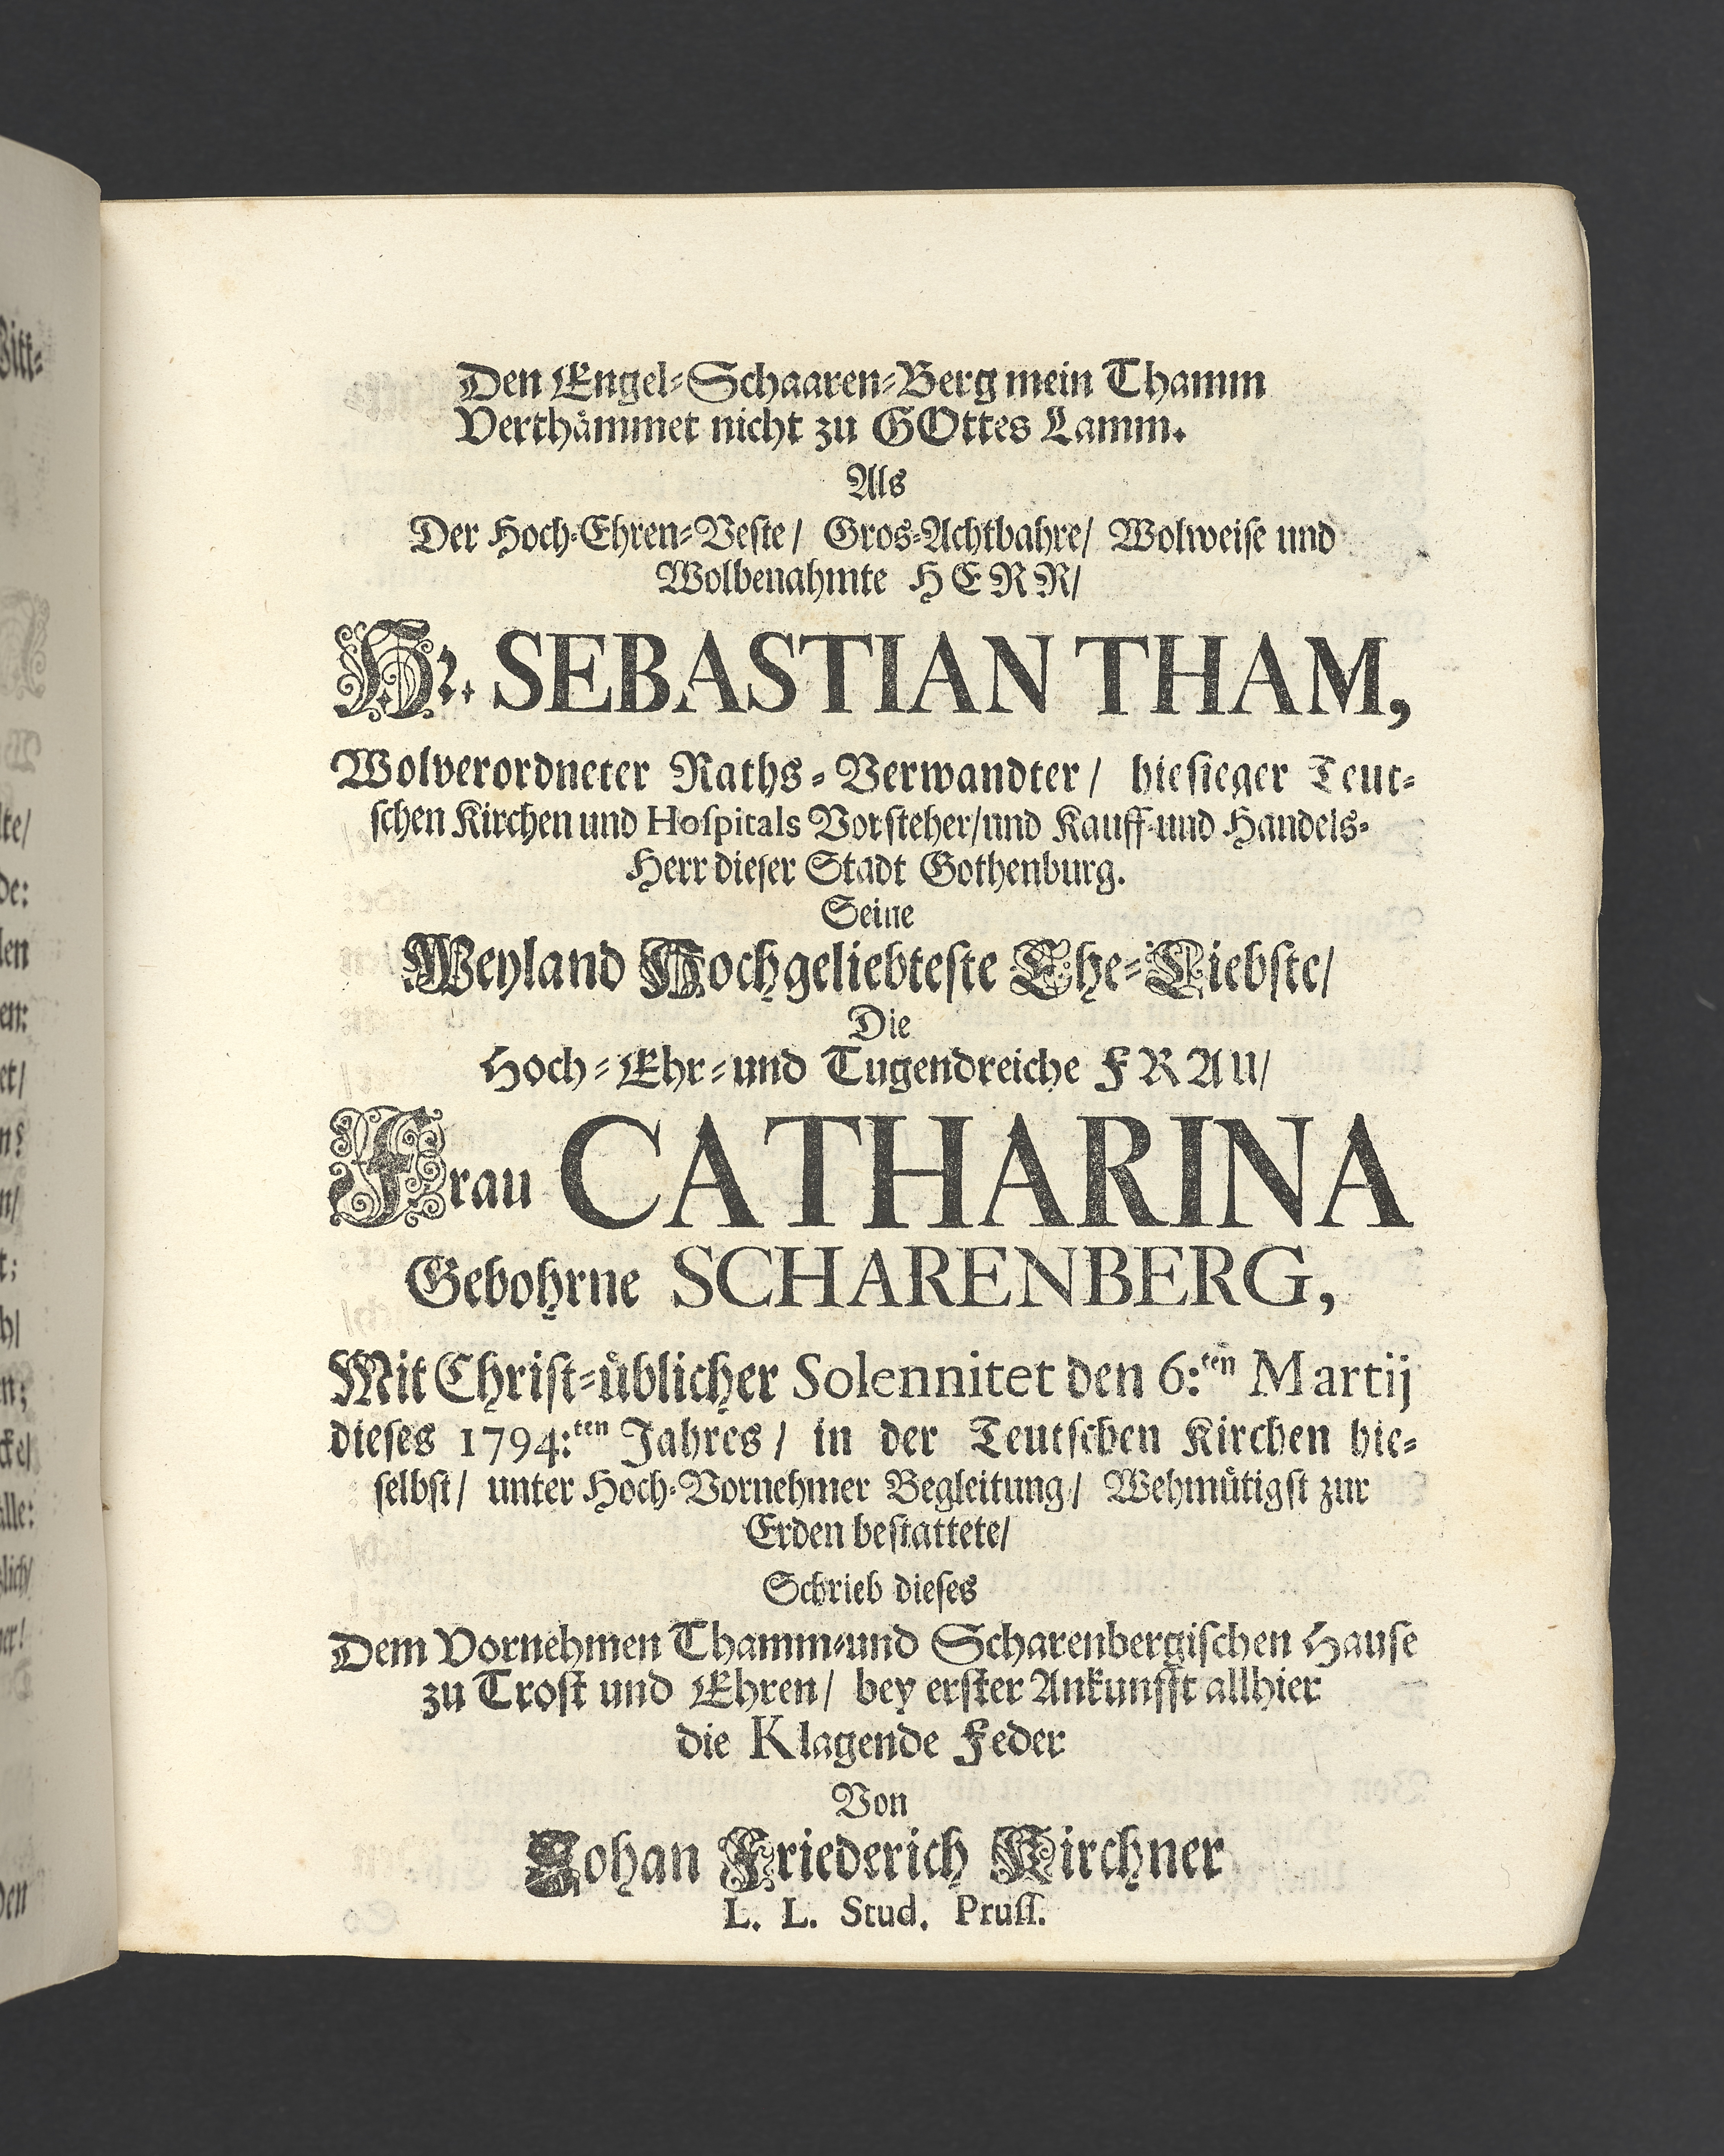 Den Engel-Schaaren-Berg mein Thamm
Verthåmmet nicht zu GOttes Lamm.
Als
Der Hoch-Ehren-Veste/ Gros-Achtbahre/ Wolweiſe und
Wolbenahmte HERR/
Hr. SEBASTIAN THAM,
Wolverordneter Raths-Verwandter/ hieſieger Teut-
ſchen Kirchen und Hoſpitals Vorſteher/und Kauff-und Handels-
Herr dieſer Stadt Gothenburg.
Seine
Weyland Hochgeliebteſte Ehe-Liebſte/
Die
Hoch-Ehr-und Tugendreiche FRAU/
Frau CATHARINA
Gebohrne SCHARENBERG,
Mit Chriſt-üblicher Solennitet den 6:ten Martij
dieſes 1794:ten Jahres/ in der Teutſchen Kirchen hie-
ſelbſt/ unter Hoch-Vornehmer Begleitung/ Wehmütigſt zur
Erden beſtattete/
Schrieb dieſes
Dem Vornehmen Thamm-und Scharenbergiſchen Hauſe
zu Troſt und Ehren/ bey erſter Ankunfft allhier
die Klagende Feder
Von
Johan Friederich Kirchner
L. L. Stud. Pruſſ.